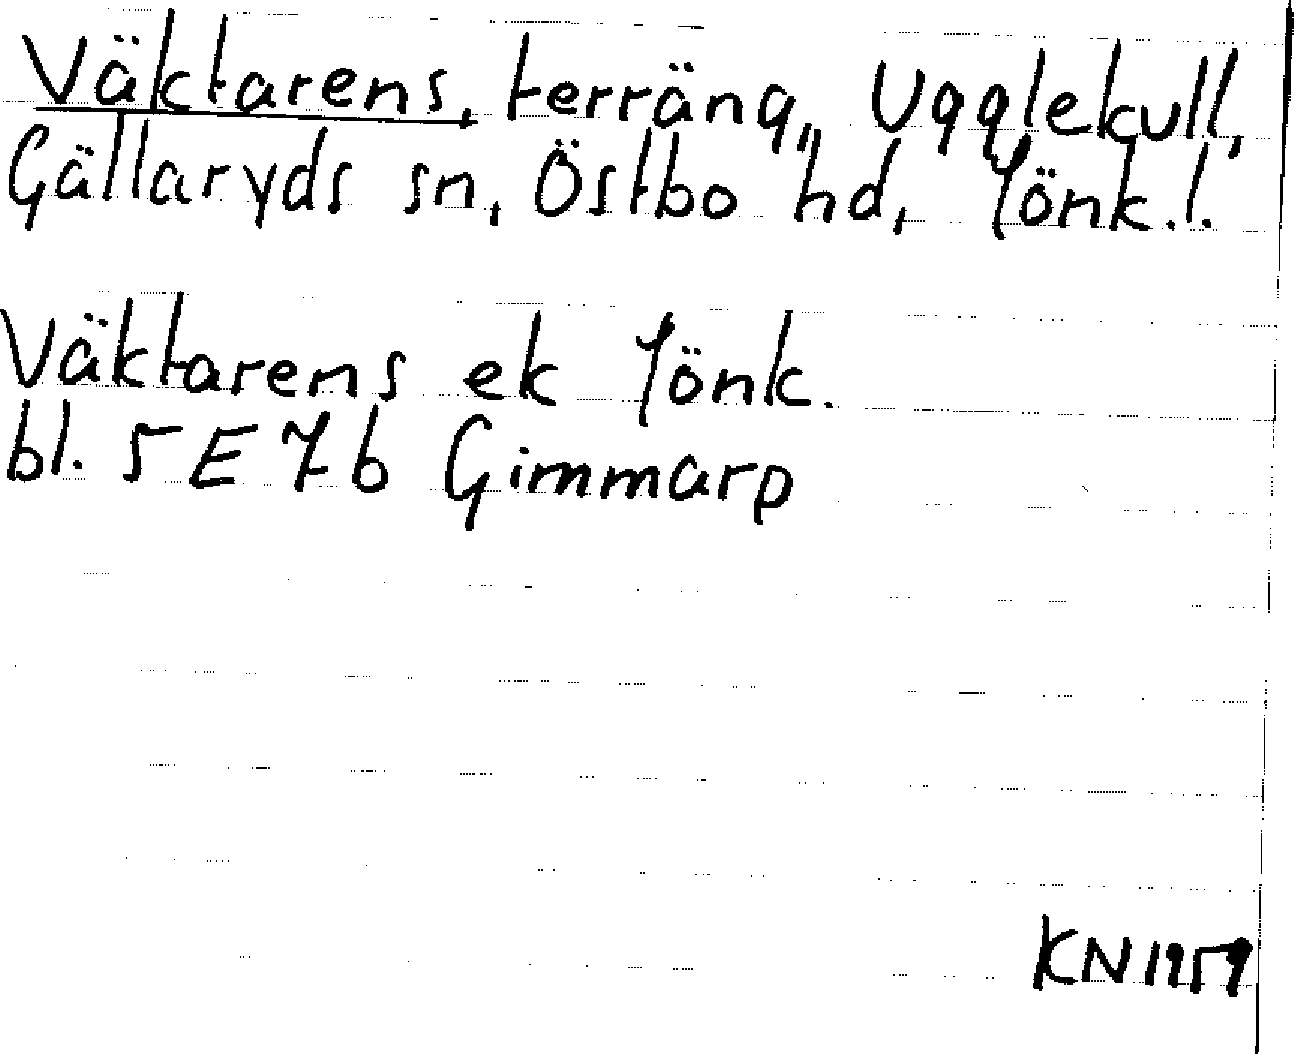 Väktarens, terräng, Ugglekull,
Gällaryds sn, Östbo hd, Jönk.l.
Väktarens ek Jönk.
bl. 5E7b Gimmarp
KN1959